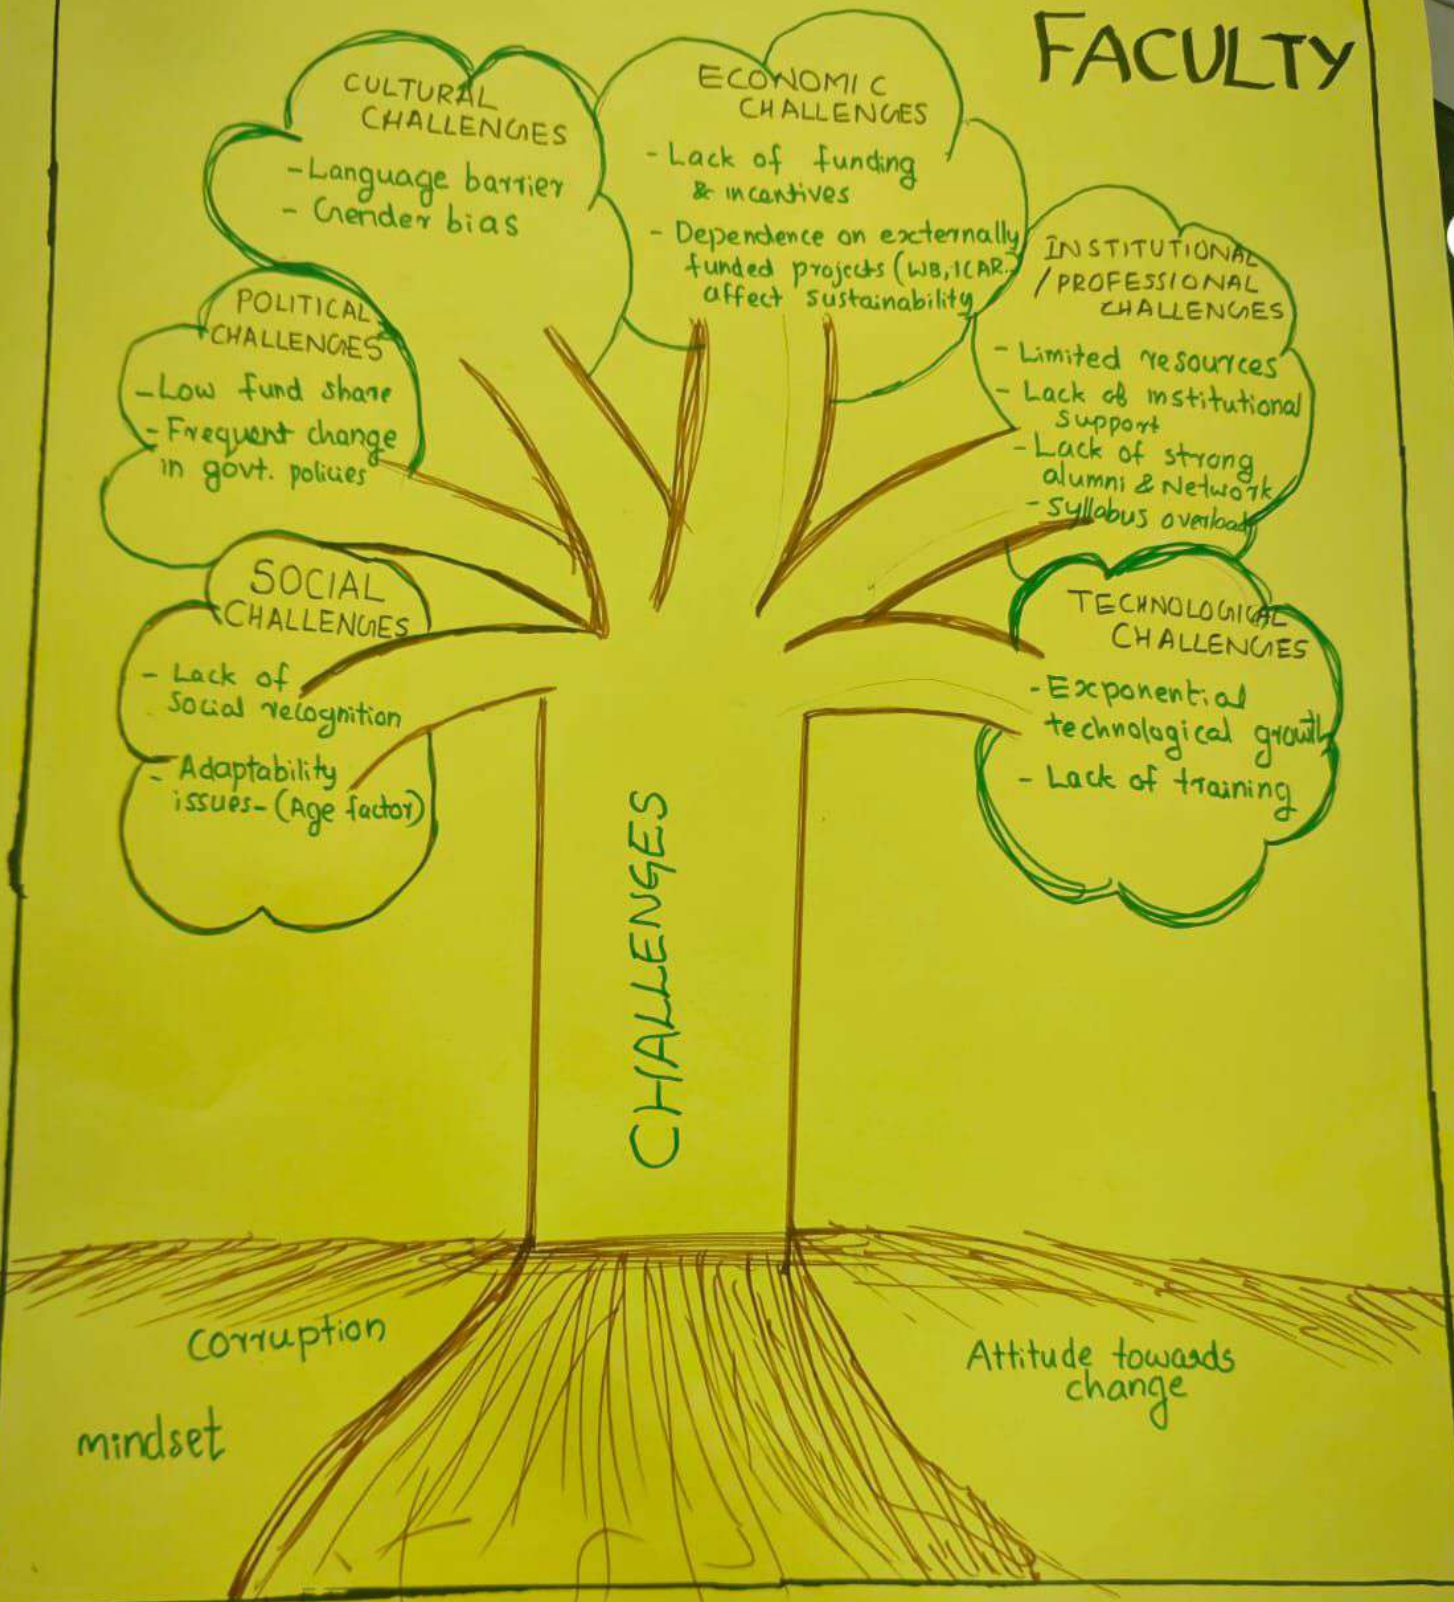 FACULTY
CULTURAL
CHALLENGES
- Language barrier
- Gender bias
ECONOMIC
CHALLENGES
- Lack of funding
& incentives
- Dependence on externally
funded projects (WB, ICAR..
affect sustainability
INSTITUTIONAL
/PROFESSIONAL
CHALLENGES
- Limited resources
- Lack of institutional
support
- Lack of strong
alumni & Network
- Syllabus overload
POLITICAL
CHALLENGES
- Low fund share
- Frequent change
in govt. policies
SOCIAL
CHALLENGES
- Lack of
social recognition
- Adaptability
issues- (Age factor)
TECHNOLOGICAL
CHALLENGES
- Exponential
technological growth
- Lack of training
CHALLENGES
Corruption
mindset
Attitude towards
change